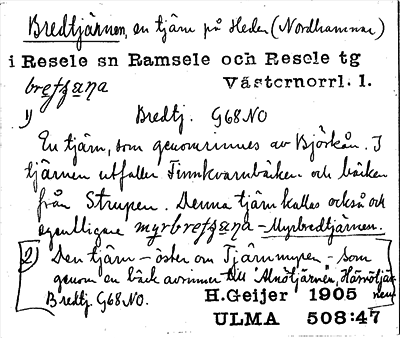 Bredtjärnen, en tjärn på Heden (Nordhamnar)
i Resele sn Ramsele och Resele tg
Västernorrl. l.
1)
Bredtj. G68NO
En tjärn, som genomrinnes av Björkån. I
tjärnen utfaller Finnkvarnbäcken och bäcken
från Strupen. Denna tjärn kallas också och
egentligare - Myrbredtjärnen.
2) Den tjärn - öster om Tjärnmyren - som
genom en bäck avrinner till Alnötjärnen, Härnötjär-
nen
Bredtj. G68NO.
H.Geijer 1905
ULMA 508:47